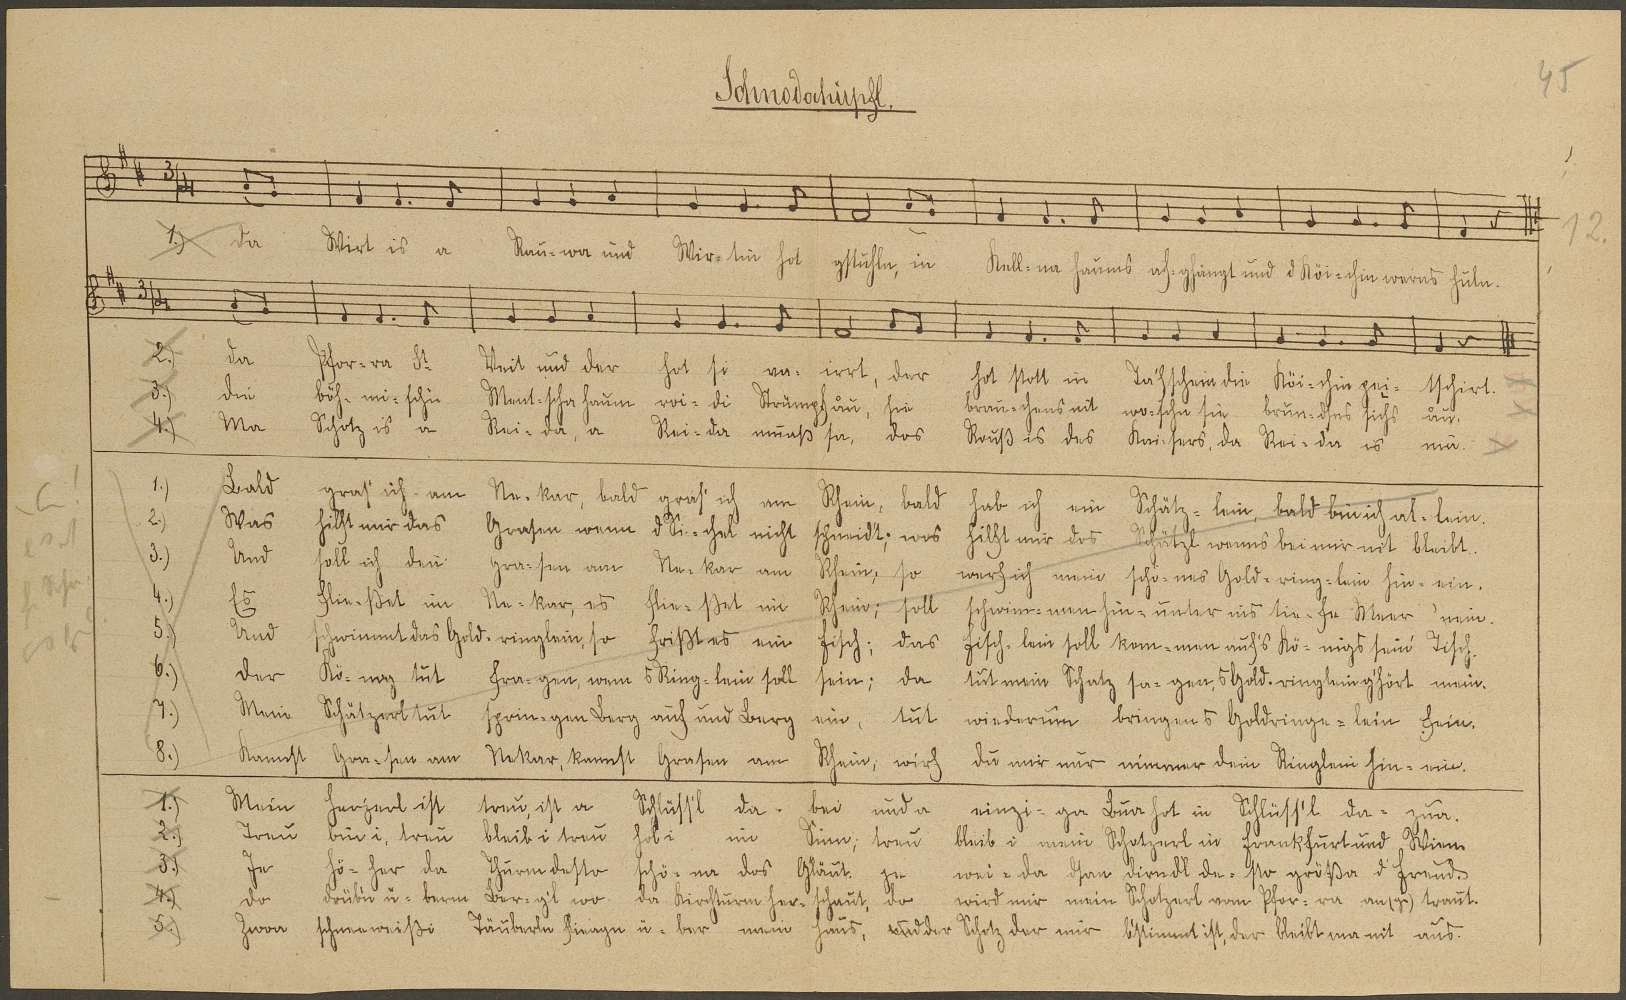 Schnodahüpfl.
45
12.
1.) da Wirt is a Rau-wa und Wir-tin hot gstuhln, in Kell-na haums af-ghängt und d Köi-chin werns huln.
2.) da Pfor-ra St Veit und der hot si va-irrt, der hot stott in die Köi-chin tschirt.
3.) die böh-mi-schn Ment-scha haum roi-di Strümpf åu, sie brau-chens nit wo-schn sie brun-dsns sichs åu.
4.) Ma Schotz is a Rei-da, a Rei-da muaß sa, das Rouß is des Kai-sers, da Rei-da is mā.
1.) Bald gras' ich am Ne-kar, bald gras' ich am Rhein, bald hab ich ein Schätz-lein, bald bin ich al-lein.
2.) Was hilft mir das Grasen wenn d'Si-chel nicht schneid't; was hilft mir das Schätzl wenns bei mir nit bleibt.
3.) Und soll ich den gra-sen am Ne-kar am Rhein, so werf ich mein schö-nes Gold-ring-lein hin-ein.
4.) Es flie-ßet im Ne-kar, es flie-ßet im Rhein; soll schwim-men hin-unter ins tie-fe Meer 'nein.
5.) Und schwimmt das Gold-ringlein, so frißt es ein Fisch; das Fisch-lein soll kom-men auf's Kö-nigs sein' Tisch.
6.) Der Kö-nig tut fra-gen, wem s Ring-lein soll sein; da tut mein Schatz sa-gen, s Gold-ringlein g'hört mein.
7.) Mein Schätzerl tut sprin-gen Berg auf und Berg ein, tut wiederum bringen s Goldringe-lein fein.
8.) Kannst Gra-sen am Nekar, kannst Grasen am Rhein, wirf du mir nur nimmer dein Ringlein hin-ein.
1.) Mein Herzerl ist treu, ist a Schlüss'l da-bei und a einzi-ga Bua hot in Schlüss'l da-zua.
2.) Treu bin i, treu bleib i treu hob i im Sinn, treu bleib i mein Schotzerl in Frankfurt und Wien
3.) Je hö-her da Thurm desto schö-na dos Gläut. je wei-da dsan Dirndl de-sto größa d Freud.
4.) Do drübn ü-berm Ber-gl wo da Kirchturm her-schaut, do wird mir mein Schotzerl vom Pfor-ra an(ge) traut.
5.) Zwoa schneeweißi Täuberln fliagn ü-ber mein Haus, und der Schotz der mir b'stimmt ist, der bleibt ma nit aus.